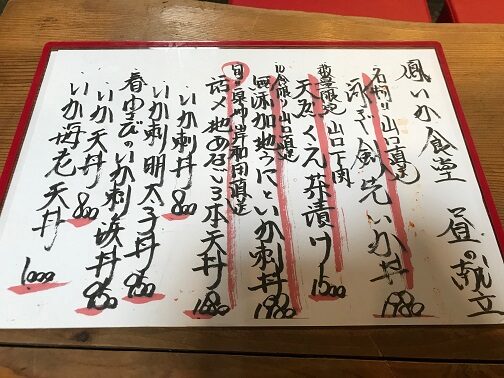 鳳いか食堂 昼の献立
山口直送
泳ぎ剣先いか丼 1980
数量限定 山口下関
天然くえ茶漬け 1500
10食限り山口直送
無添加地うにといか刺丼 1980
旬の泉州岸和田直送
活〆地あなご3本天丼 1680
いか刺丼 800
いか刺明太子丼 950
春ゆさびのいか刺身丼 950
いか天丼 800
いか梅花天丼 1,000